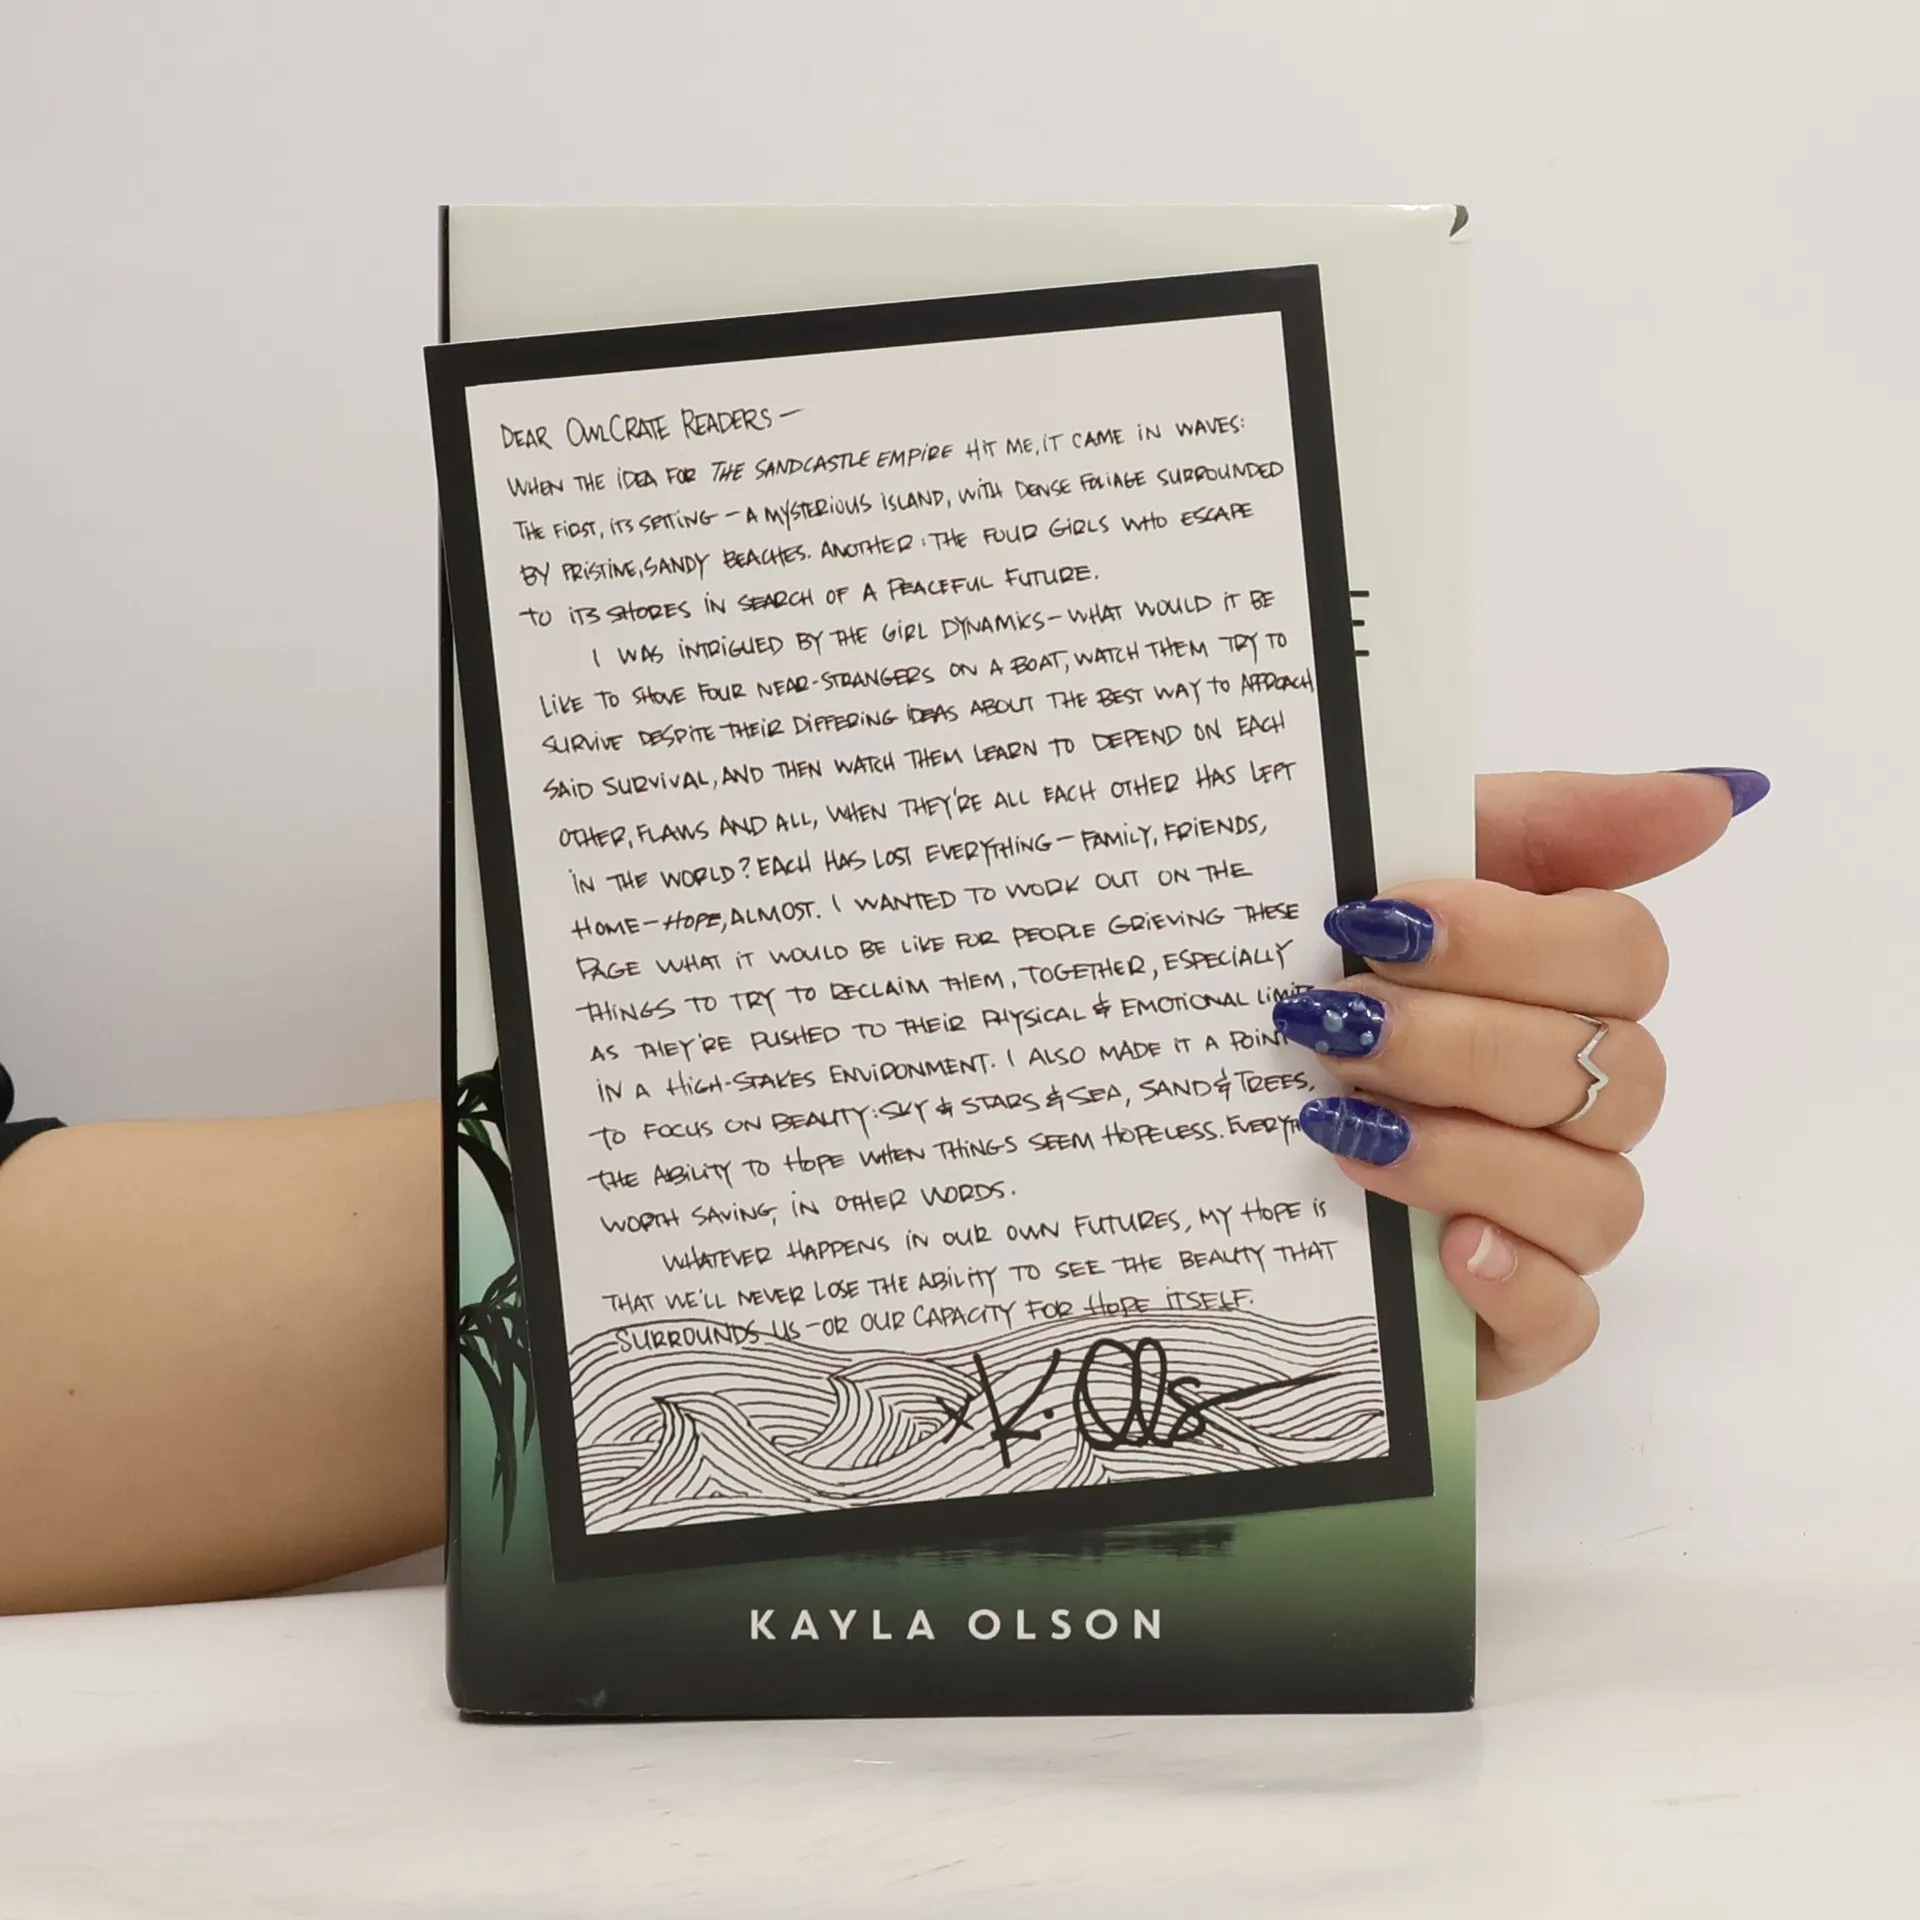 DEAR OWLCRATE READERS—
WHEN THE IDEA FOR THE SANDCASTLE EMPIRE HIT ME, IT CAME IN WAVES:
THE FIRST, ITS SETTING—A MYSTERIOUS ISLAND, WITH DENSE FOLIAGE SURROUNDED
BY PRISTINE, SANDY BEACHES. ANOTHER: THE FOUR GIRLS WHO ESCAPE
TO ITS SHORES IN SEARCH OF A PEACEFUL FUTURE.
I WAS INTRIGUED BY THE GIRL DYNAMICS—WHAT WOULD IT BE
LIKE TO SHOVE FOUR NEAR-STRANGERS ON A BOAT, WATCH THEM TRY TO
SURVIVE DESPITE THEIR DIFFERING IDEAS ABOUT THE BEST WAY TO APPROACH
SAID SURVIVAL, AND THEN WATCH THEM LEARN TO DEPEND ON EACH
OTHER, FLAWS AND ALL, WHEN THEY'RE ALL EACH OTHER HAS LEFT
IN THE WORLD? EACH HAS LOST EVERYTHING—FAMILY, FRIENDS,
HOME—HOPE, ALMOST. I WANTED TO WORK OUT ON THE
PAGE WHAT IT WOULD BE LIKE FOR PEOPLE GRIEVING THESE
THINGS TO TRY TO RECLAIM THEM, TOGETHER, ESPECIALLY
AS THEY'RE PUSHED TO THEIR PHYSICAL & EMOTIONAL LIMITS
IN A HIGH-STAKES ENVIRONMENT. I ALSO MADE IT A POINT
TO FOCUS ON BEAUTY: SKY & STARS & SEA, SAND & TREES,
THE ABILITY TO HOPE WHEN THINGS SEEM HOPELESS. EVERYTH
WORTH SAVING, IN OTHER WORDS.
WHATEVER HAPPENS IN OUR OWN FUTURES, MY HOPE IS
THAT WE'LL NEVER LOSE THE ABILITY TO SEE THE BEAUTY THAT
SURROUNDS US—OR OUR CAPACITY FOR HOPE ITSELF.
x K. Ols
KAYLA OLSON